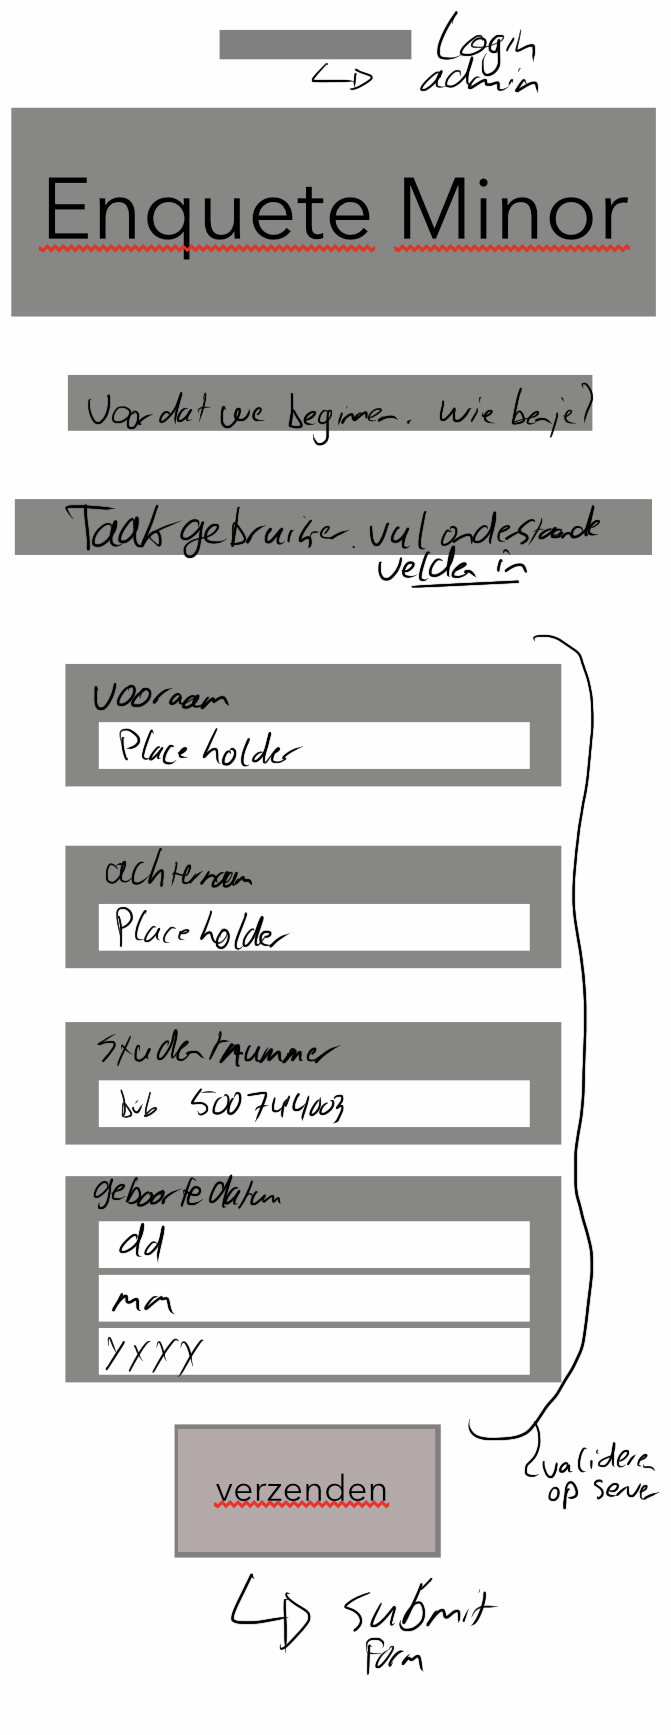 Login
admin
Enquete Minor
Voordat we beginnen. Wie ben je?
Taak gebruiker. vul onderstaande
velden in
Vooraam
Placeholder
achternaam
Placeholder
studentnummer
bvb 500744003
geboortedatum
dd
mm
yyyy
verzenden
valideren
op server
submit
form